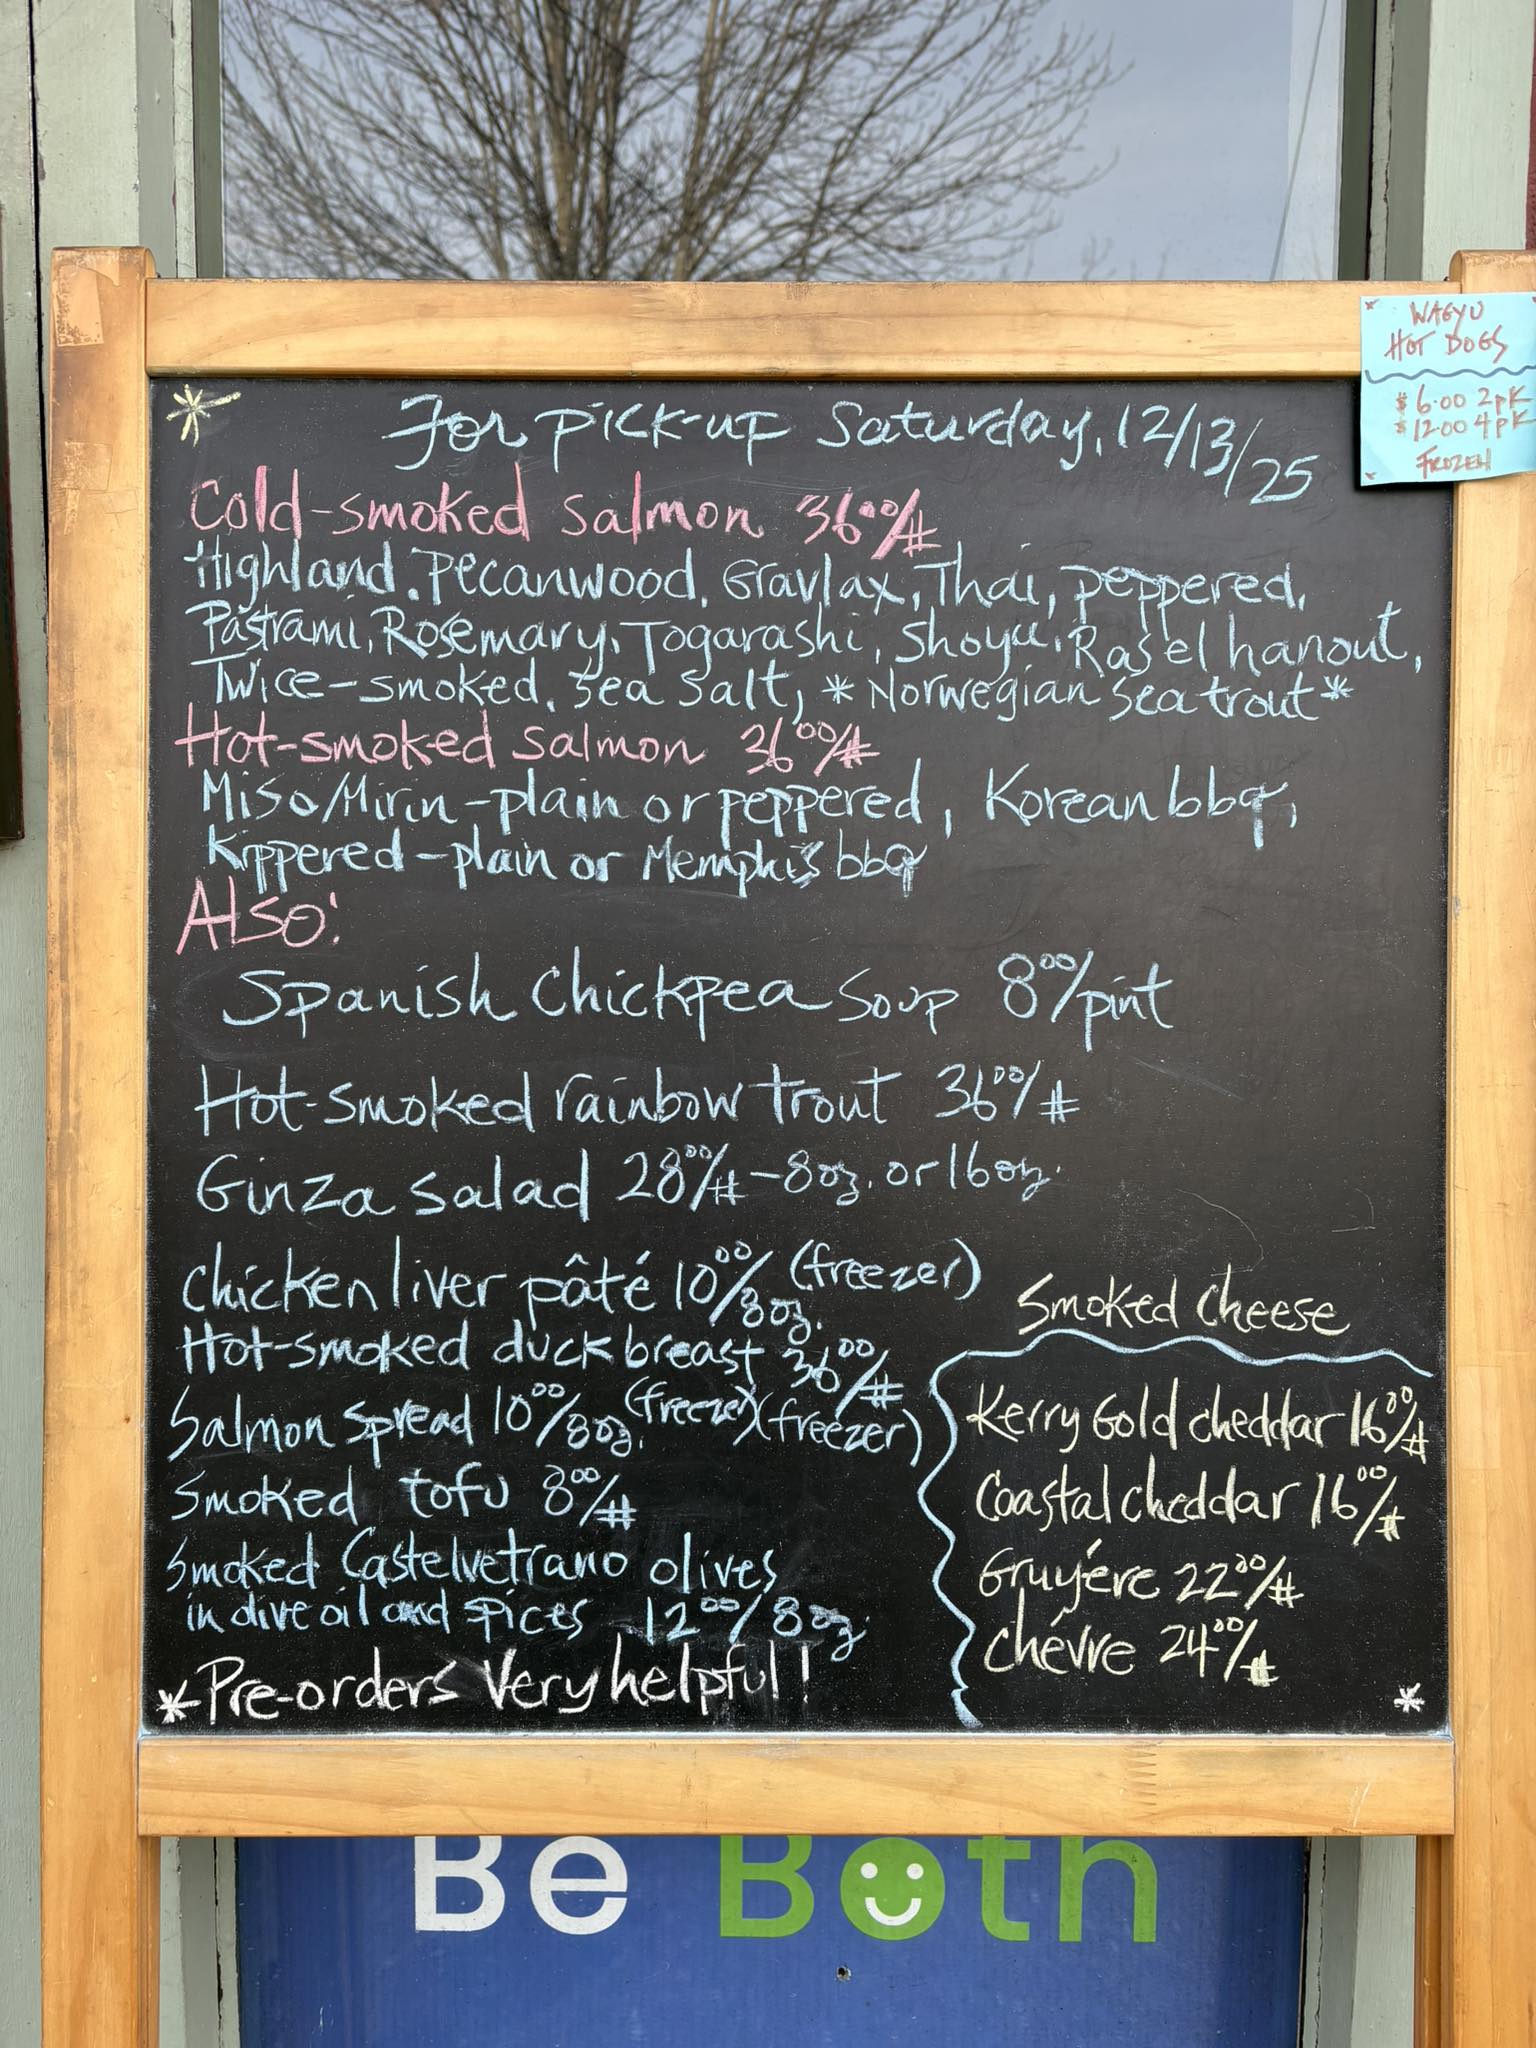 WAGYU
HOT DOGS
$6.00 2pk
$12.00 4pk
FROZEN
* For pick-up Saturday, 12/13/25
Cold-smoked salmon 36⁰⁰/#
Highland, Pecanwood, Gravlax, Thai, peppered,
Pastrami, Rosemary, Togarashi, Shoyu, Ras el hanout,
Twice-smoked, Sea Salt, *Norwegian Sea trout*
Hot-smoked salmon 36⁰⁰/#
Miso/Mirin-plain or peppered, Korean bbq,
Kippered-plain or Memphis bbq
Also:
Spanish Chickpea Soup 8⁰⁰/pint
Hot-smoked rainbow trout 36⁰⁰/#
Ginza salad 28⁰⁰/# - 8oz. or 16oz.
Chicken liver pâté 10⁰⁰/8oz. (freezer)
Hot-smoked duck breast 36⁰⁰/# (freezer)
Salmon spread 10⁰⁰/8oz. (freezer)
Smoked tofu 8⁰⁰/#
Smoked Castelvetrano olives
in olive oil and spices 12⁰⁰/8oz.
*Pre-orders Very helpful!
Smoked Cheese
Kerry Gold cheddar 16⁰⁰/#
Coastal cheddar 16⁰⁰/#
Gruyére 22⁰⁰/#
Chévre 24⁰⁰/#
*
Be Both